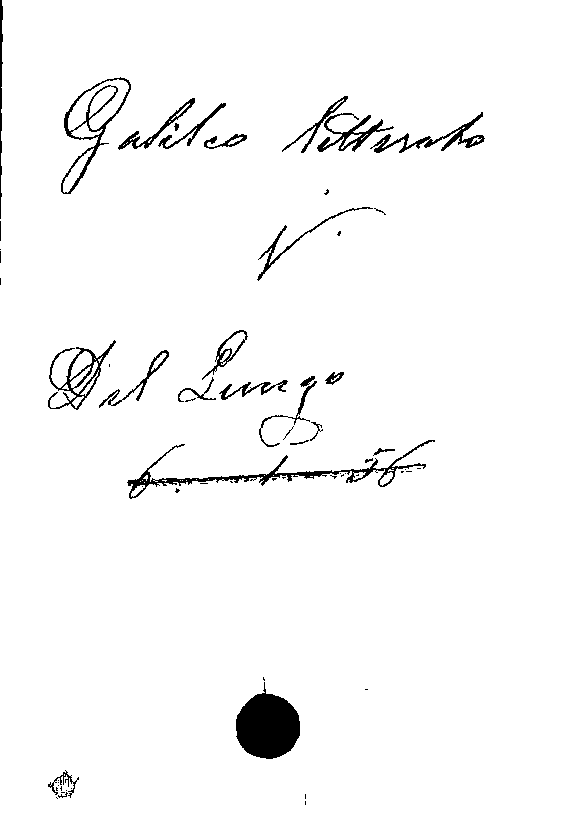 Galileo letterato
V.
Del Lungo
6. 1. 56